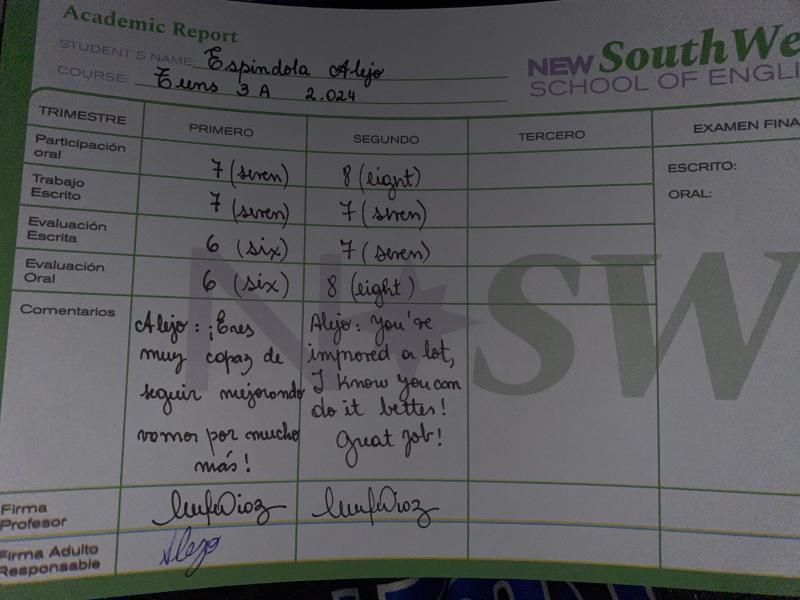 Academic Report
STUDENT'S NAME: Espindola Alejo
COURSE: Teens 3 A 2.024
NEW SouthWe
SCHOOL OF ENGLI
TRIMESTRE PRIMERO SEGUNDO TERCERO EXAMEN FINA
Participación oral 7 (seven) 8 (eight)
ESCRITO:
Trabajo Escrito 7 (seven) 7 (seven)
ORAL:
Evaluación Escrita 6 (six) 7 (seven)
Evaluación Oral 6 (six) 8 (eight)
NSW
Comentarios
Alejo: ¡Eres
muy capaz de
seguir mejorando
vamos por mucho
más!
Alejo: You're
improved a lot,
I know you can
do it better!
Great job!
Firma Profesor
Firma Adulto Responsable Alejo